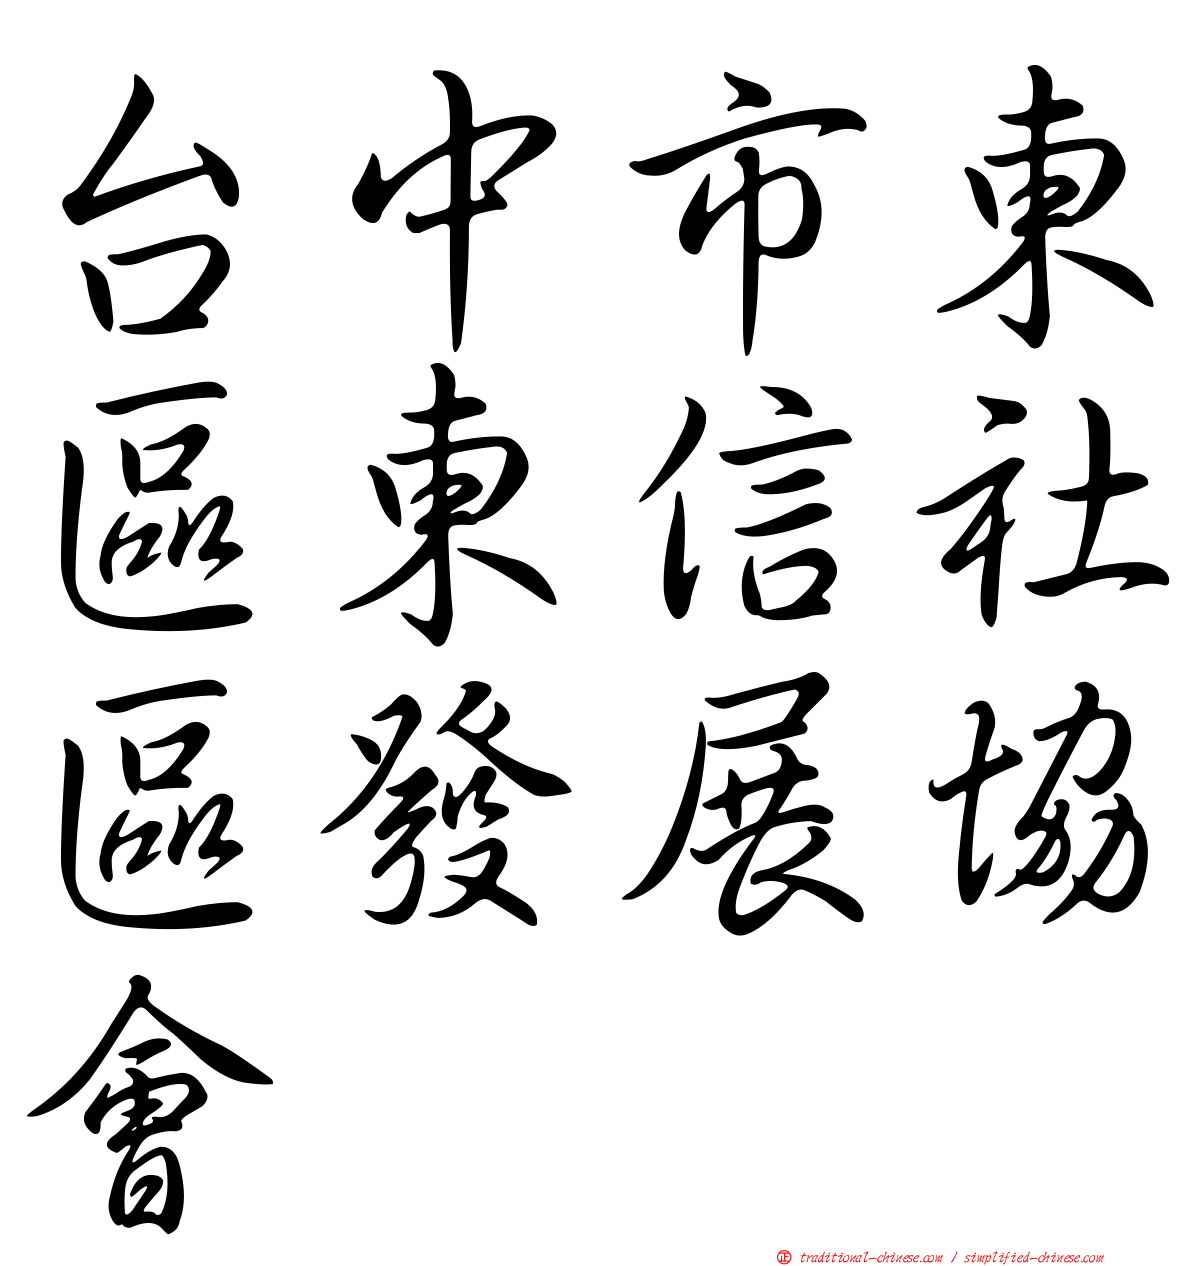 台中市東
區東信社
區發展協
會
正 traditional-chinese.com / simplified-chinese.com